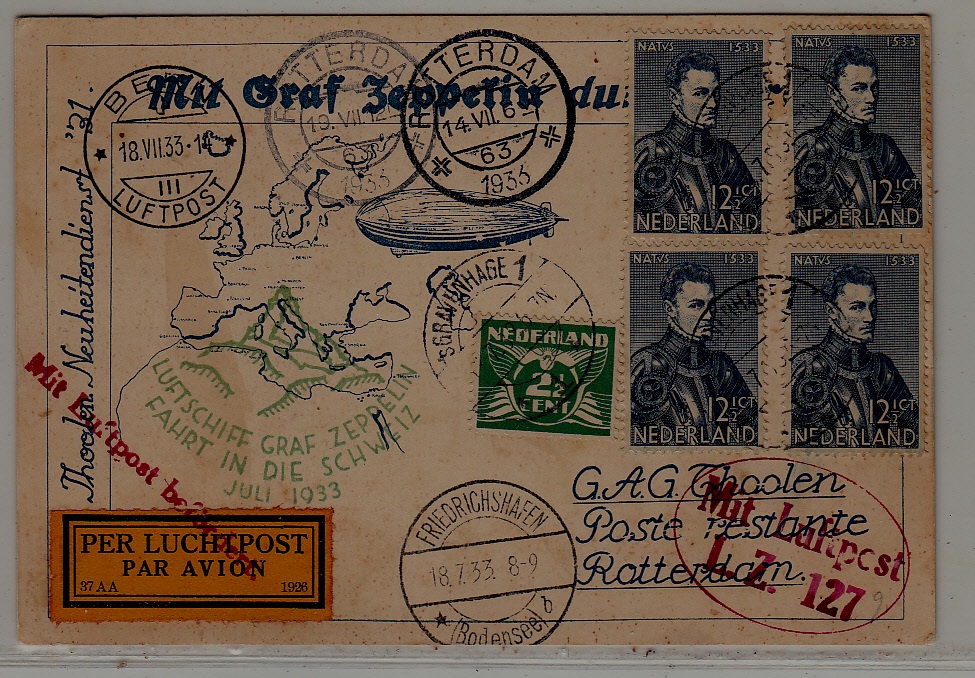 Mit Graf Zeppelin
BE
18.VII.33.
III
LUFTPOST
ROTTERDAM
19.VII.12
1933
ROTTERDAM
14.VII.6
63
1933
NATVS 1533
12½ CT
NEDERLAND
NATVS 1533
12½ CT
NEDERLAND
NATVS 1533
12½ CT
NEDERLAND
NATVS 1533
12½ CT
NEDERLAND
Thoolen Neuheitendienst "31.
'SGRAVENHAGE 1
NEDERLAND
2½
CENT
LUFTSCHIFF GRAF ZEPPELIN
FAHRT IN DIE SCHWEIZ
JULI 1933
Mit Luftpost befördert
G.A.G. Thoolen
Poste restante
Rotterdam.
Mit Luftpost
L.Z. 127
9
PER LUCHTPOST
PAR AVION
37 AA 1926
FRIEDRICHSHAFEN
18.7.33. 8-9
(Bodensee) b